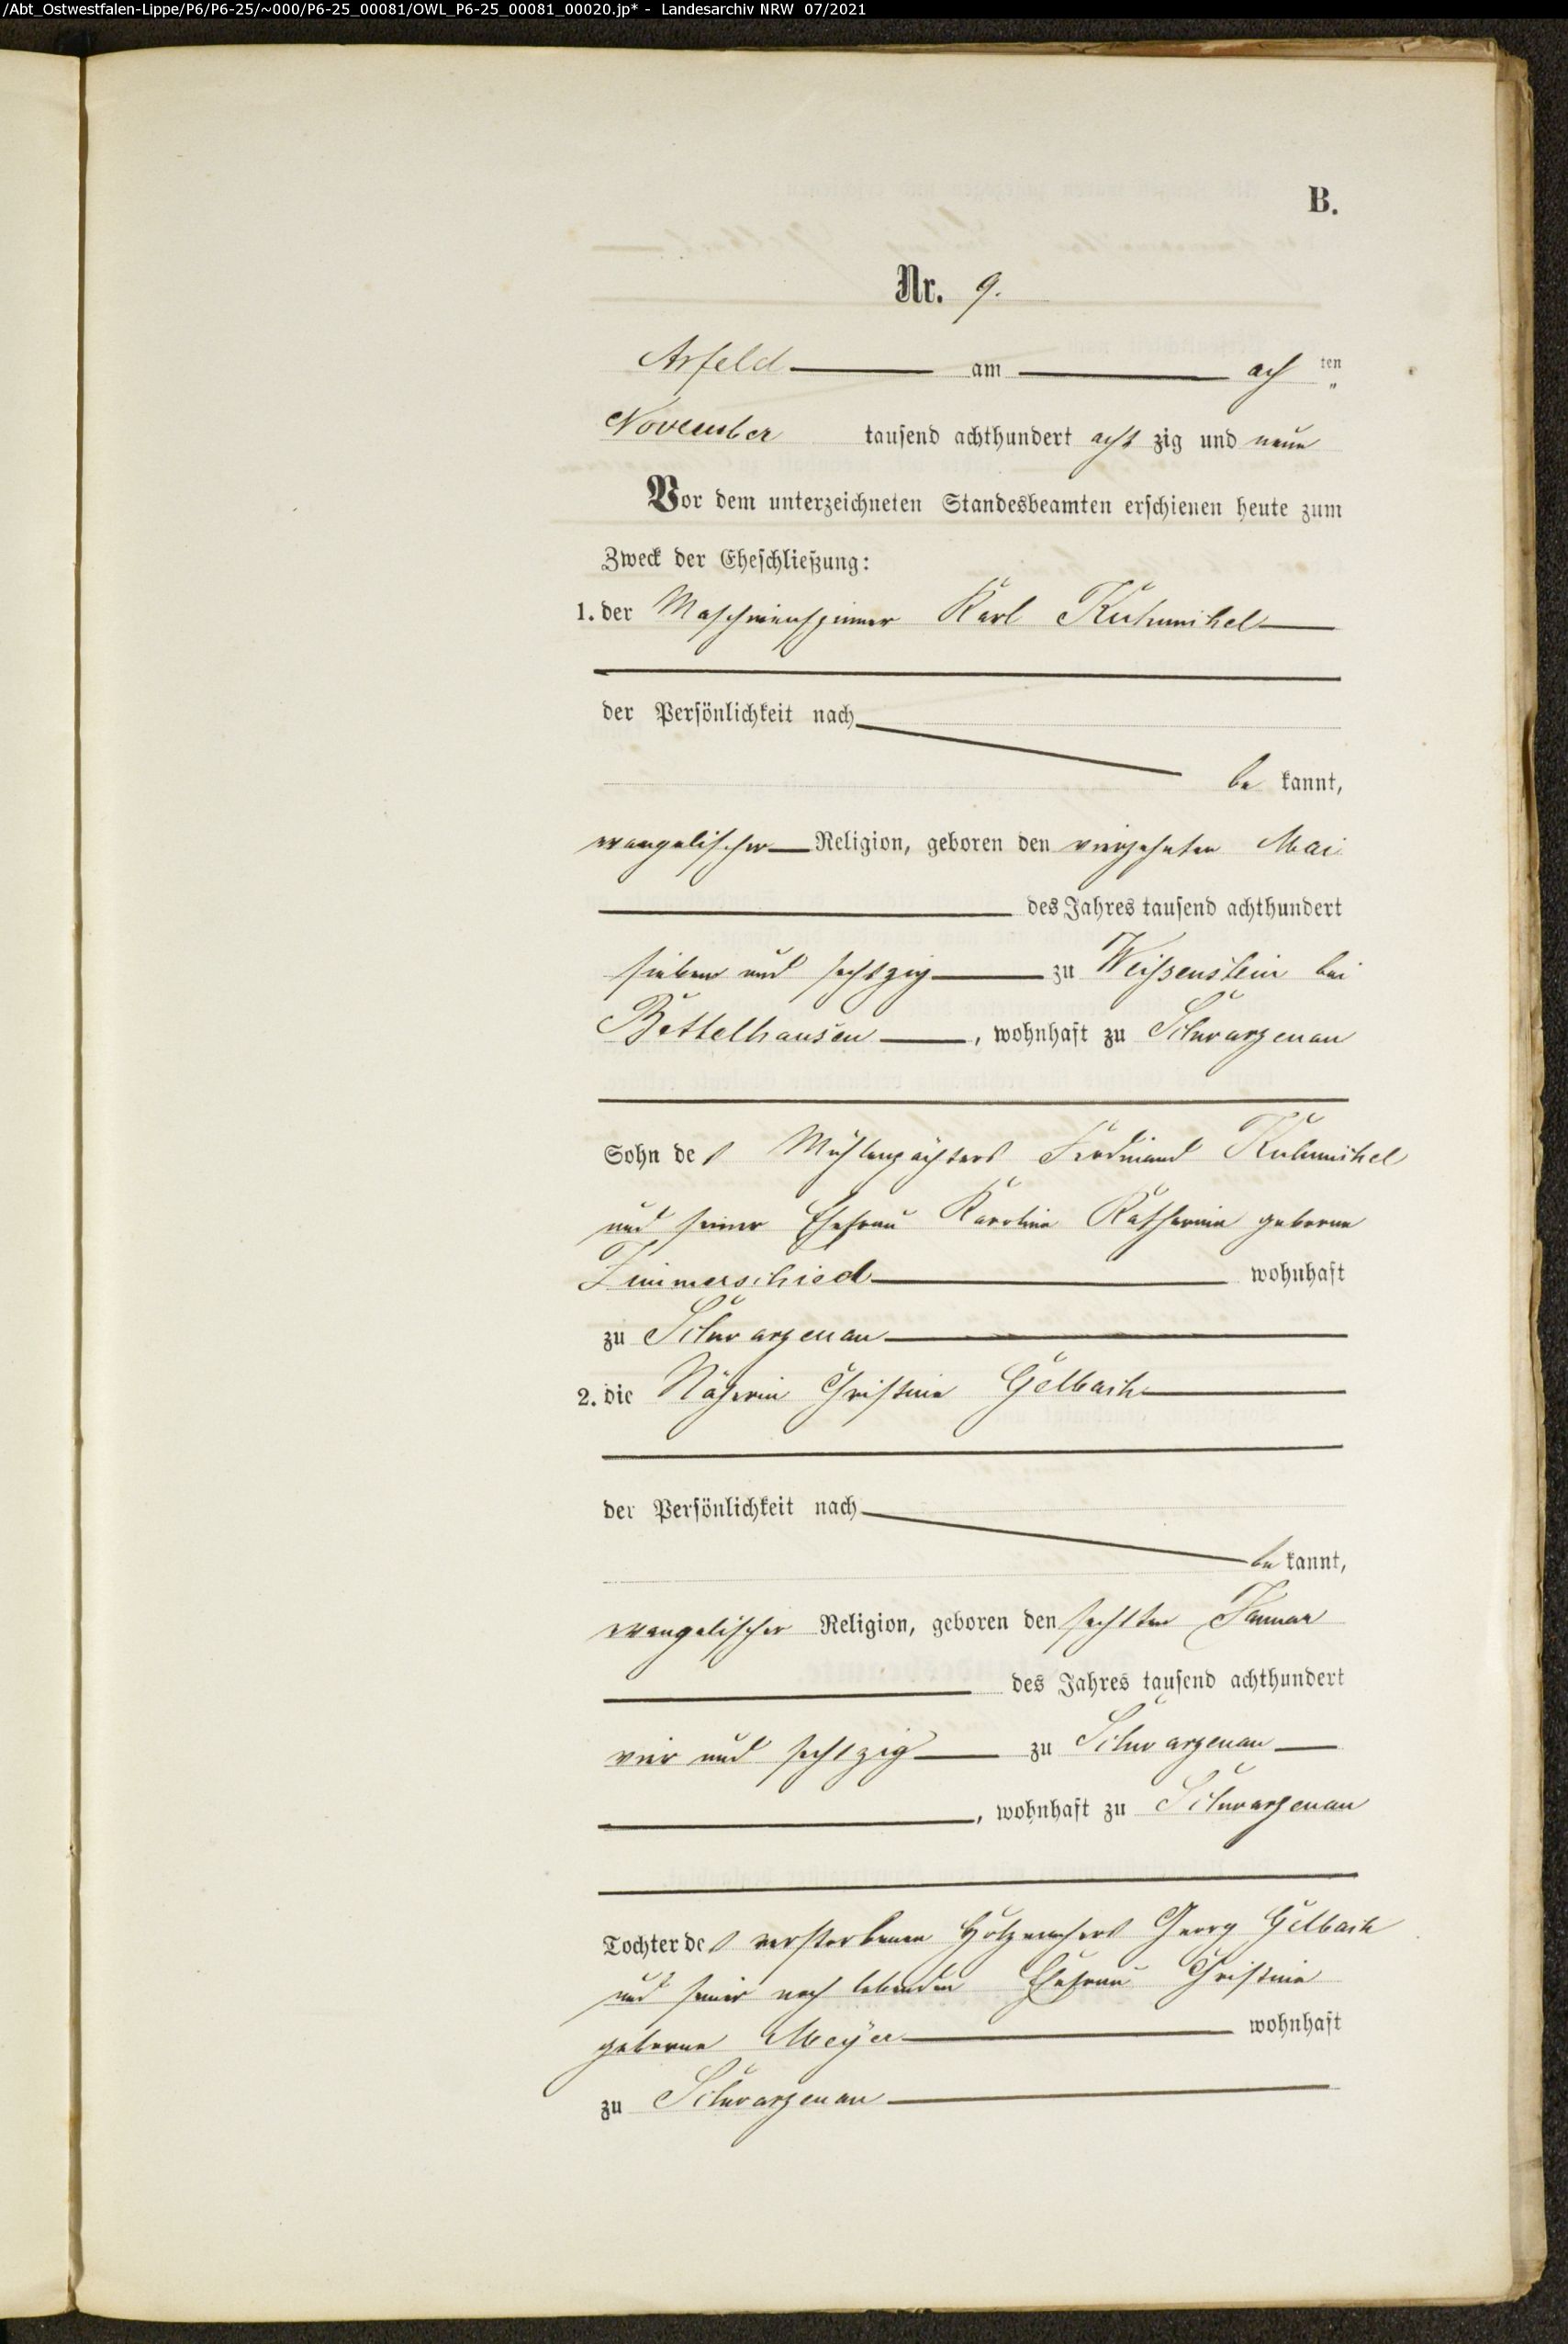 /Abt_Ostwestfalen-Lippe/P6/P6-25/~000/P6-25_00081/OWL_P6-25_00081_00020.jp* - Landesarchiv NRW 07/2021
B.
Nr. 9.
Arfeld am ach ten
November tausend achthundert acht zig und neun
Vor dem unterzeichneten Standesbeamten erschienen heute zum
Zweck der Eheschließung:
1. der Maschinenspinner Karl Kuhmichel
der Persönlichkeit nach
be kannt,
evangelischer Religion, geboren den vierzehnten Mai
des Jahres tausend achthundert
sieben und sechszig zu Weißenstein bei
Bettelhausen, wohnhaft zu Schwarzenau
Sohn des Mühlenpächters Ferdinand Kuhmichel
und seiner Ehefrau Karoline Katharine geborene
Zimmerschied wohnhaft
zu Schwarzenau
2. die Näherin Christine Gelbach
der Persönlichkeit nach
be kannt,
evangelischer Religion, geboren den sechsten Januar
des Jahres tausend achthundert
vier und sechszig zu Schwarzenau
, wohnhaft zu Schwarzenau
Tochter des verstorbenen Georg Gelbach
und seiner noch lebenden Ehefrau Christine
geborene Meyer wohnhaft
zu Schwarzenau